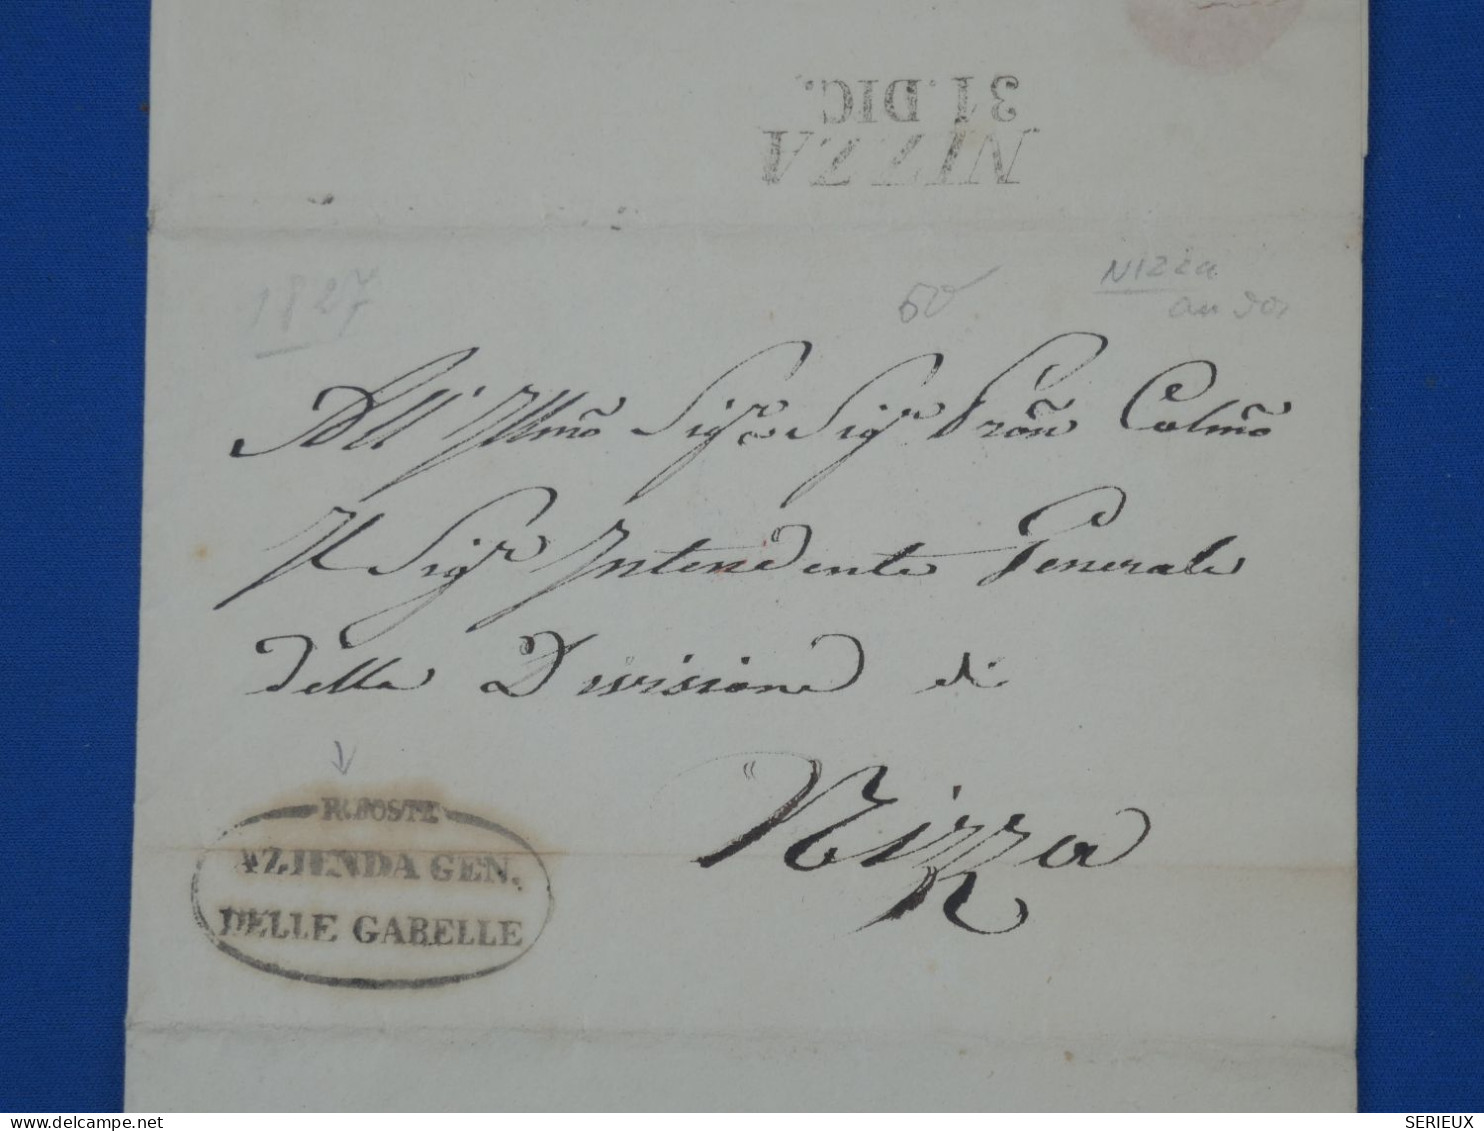 NIZZA
31.DIC.
1827
50
NIZZa
au dos
All' Illmõ Sigr. Sigr. Prõn Colmõ
Il Sigr. Intendente Generale
della Divisione di
Nizza
R. POSTE
AZIENDA GEN.
DELLE GABELLE
delcampe.net
SERIEUX